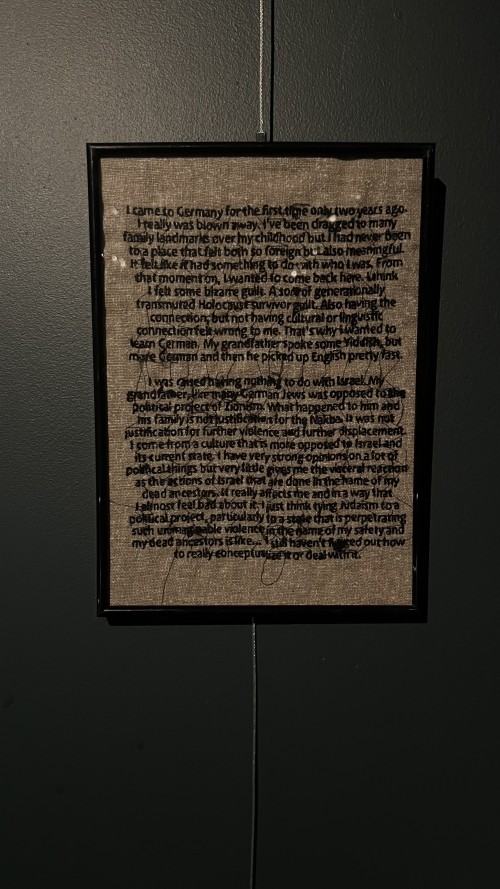 I came to Germany for the first time only two years ago.
I really was blown away. I've been dragged to many
family landmarks over my childhood but I had never been
to a place that felt both so foreign but also meaningful.
It felt like it had something to do with who I was. From
that moment on, I wanted to come back here. I think
I felt some bizarre guilt. A sort of generationally
transmuted Holocaust survivor guilt. Also having the
connection, but not having cultural or linguistic
connection felt wrong to me. That's why I wanted to
learn German. My grandfather spoke some Yiddish, but
more German and then he picked up English pretty fast.
I was raised having nothing to do with Israel. My
grandfather, like many German Jews was opposed to the
political project of Zionism. What happened to him and
his family is not justification for the Nakba. It was not
justification for further violence and further displacement.
I come from a culture that is more opposed to Israel and
its current state. I have very strong opinions on a lot of
political things but very little gives me the visceral reaction
as the actions of Israel that are done in the name of my
dead ancestors. It really affects me and in a way that
I almost feel bad about it. I just think tying Judaism to a
political project, particularly to a state that is perpetrating
such unimaginable violence in the name of my safety and
my dead ancestors is like... I still haven't figured out how
to really conceptualize it or deal with it.